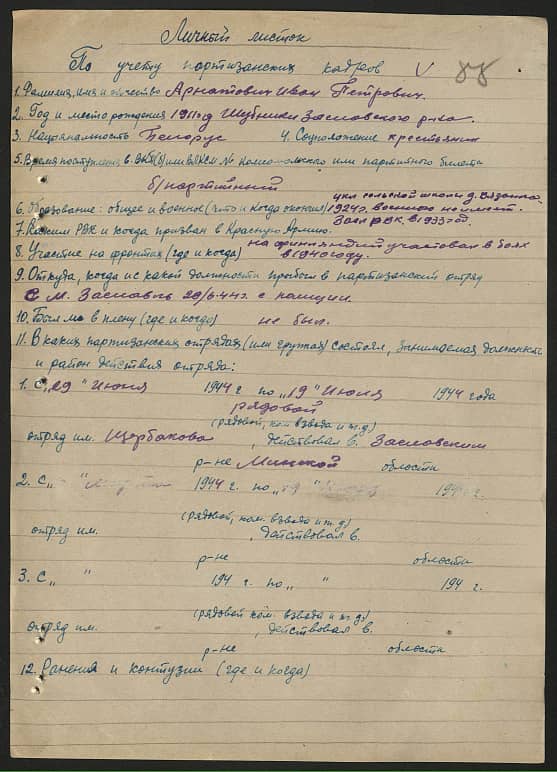 Личный листок
По учету партизанских кадров V 88
1. Фамилия, имя и отчество Арнатович Иван Петрович.
2. Год и место рождения 1911 год Шубники Заславского р-на.
3. Нацыянальность Белорус 4. Соцположение крестьянин
5. Время поступлен. в ВКП(б) или ВЛКСМ № комсомольского или партийного билета
б/партийный
цкл сельской школы д.
6. Образование: общее и военное (что и когда окончил) 1924 г. военного не имеет.
7. Каким РВК и когда призван в Красную Армию. Засл РВК в 1933 год.
8. Участие на фронтах (где и когда) на финляндий участвовал в боях
в 1940 году.
9. Откуда, когда и с какой должности прибыл в партизанский отряд
С м. Заславль 29/6-44 г. с полиции.
10. Был ли в плену (где и когда) не был.
11. В каких партизанских отрядах (или группах) состоял, занимаемая должность
и район действия отряда:
1. С „29" Июня 1944 г по „19" Июля 1944 года
рядовой
(рядовой, ком взвода и т. д)
отряд им. Щербакова, действовал в. Заславским
р-не Минской области
2. С „ " 1944 г. по „19 " 194 г.
(рядовой, ком. взвода и т. д)
отряд им. , действовал в.
р-не области
3. С „ " 194 г. по „ " 194 г.
(рядовой ком. взвода и т. д)
отряд им. , действовал в.
р-не области
12. Ранения и контузии (где и когда)